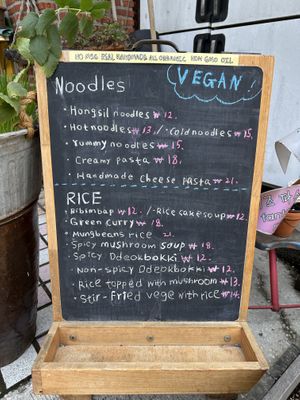 NO MSG REAL HANDMADE ALL ORGANIC NON GMO OIL
VEGAN!
Noodles
· Hongsil noodles ₩12.
· Hot noodles ₩13. / · Cold noodles ₩15.
· Yummy noodles ₩15.
· Creamy Pasta ₩18.
· Handmade Cheese Pasta ₩21.
RICE
· Bibimbap ₩12. / · Rice cake soup ₩12.
· Green curry ₩18.
· Mungbeans rice 21.
· Spicy mushroom soup ₩18.
· Spicy Ddeokbokki ₩12.
· Non-spicy Ddeokbokki ₩12.
· Rice topped with mushroom ₩13.
· Stir-Fried vege with rice ₩14.